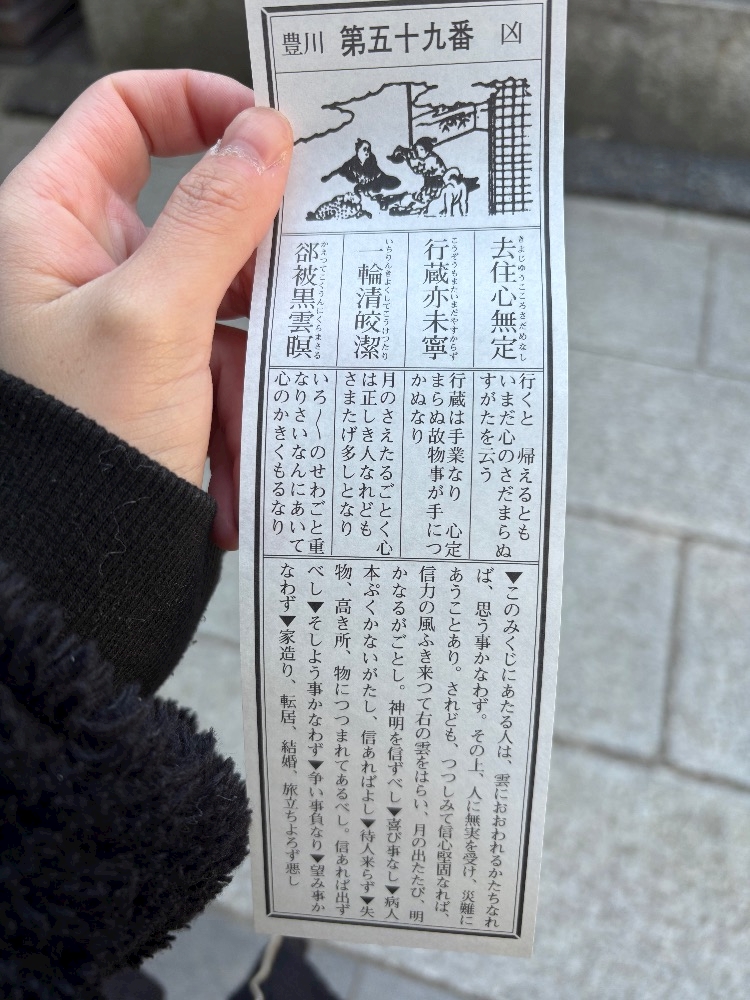 豊川 第五十九番 凶
去住心無定
きよじゆうこころさだめなし
行蔵亦未寧
こうぞうもまたいまだやすからず
一輪清皎潔
いちりんきよくしてこうけつたり
郤被黒雲瞑
かえつてこくうんにくらまさる
行くと 帰えるとも
いまだ心のさだまらぬ
すがたを云う
行蔵は手業なり 心定
まらぬ故物事が手につ
かぬなり
月のさえたるごとく心
は正しき人なれども
さまたげ多しとなり
いろ〳〵のせわごと重
なりさいなんにあいて
心のかきくもるなり
▼このみくじにあたる人は、雲におおわれるかたちなれ
ば、思う事かなわず。その上、人に無実を受け、災難に
あうことあり。されども、つつしみて信心堅固なれば、
信力の風ふき来つて右の雲をはらい、月の出たたび、明
かなるがごとし。神明を信ずべし▼喜び事なし▼病人
本ぷくかないがたし、信あればよし▼待人来らず▼失
物、高き所、物につつまれてあるべし。信あれば出ず
べし▼そしよう事かなわず▼争い事負なり▼望み事か
なわず▼家造り、転居、結婚、旅立ちよろず悪し